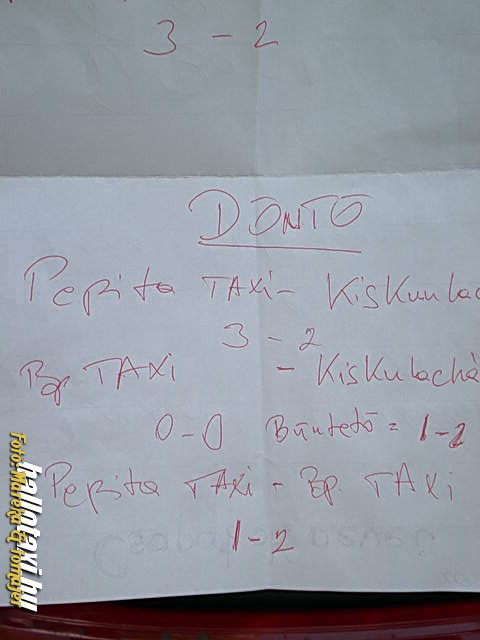 3 - 2
DÖNTŐ
Pepita TAXI - Kiskunlac
3 - 2
Bp TAXI - Kiskulachá
0-0 Büntető = 1-2
Pepita TAXI - Bp. TAXI
1-2
hallotaxi.hu